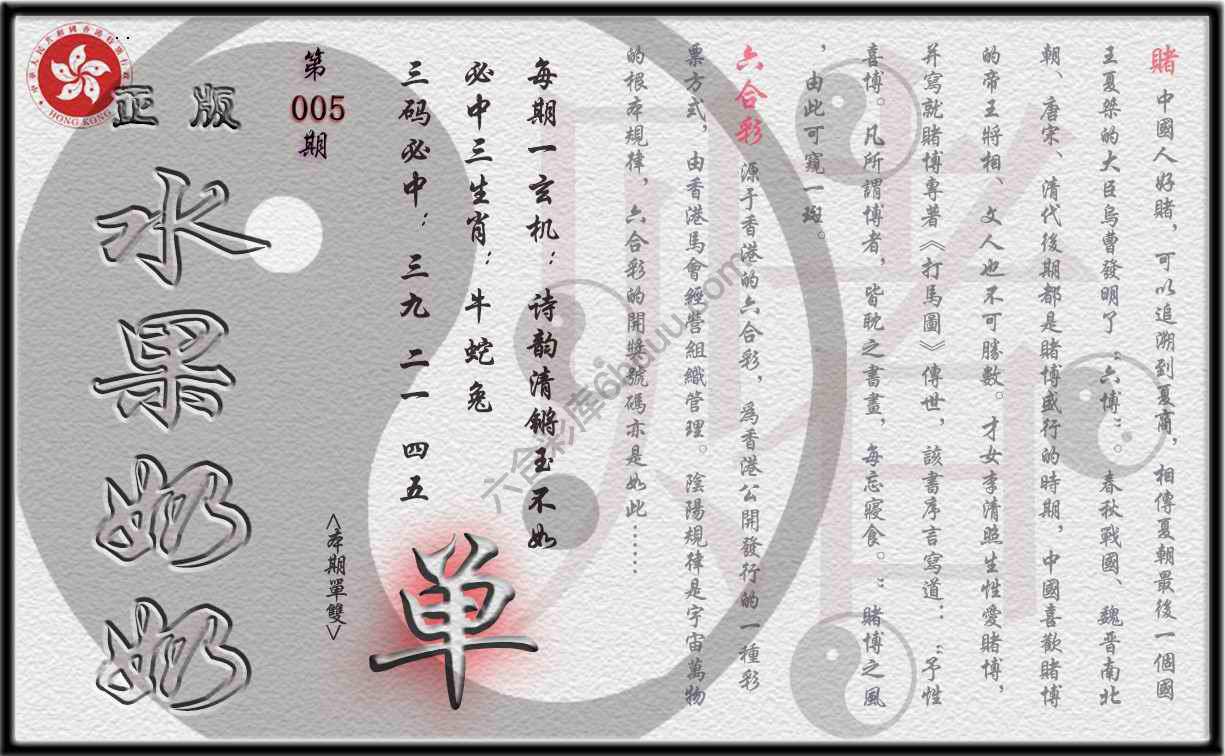 賭 中國人好賭，可以追溯到夏商，相傳夏朝最後一個國
王夏桀的大臣烏曹發明了“六博”。春秋戰國、魏晋南北
朝、唐宋、清代後期都是賭博盛行的時期，中國喜歡賭博
的帝王將相、文人也不可勝數。才女李清照生性愛賭博，
并寫就賭博專著《打馬圖》傳世，該書序言寫道：“予性
喜博。凡所謂博者，皆耽之書畫，每忘寢食。”賭博之風
，由此可窺一斑。
六合彩 源于香港的六合彩，爲香港公開發行的一種彩
票方式，由香港馬會經營組織管理。陰陽規律是宇宙萬物
的根本規律，六合彩的開獎號碼亦是如此……
每期一玄机：诗韵清锵玉不如
必中三生肖：牛蛇兔
三码必中：三九 二一 四五
单
<本期單雙>
第
005
期
正版
水果奶奶
中華人民共和國香港特別行政區
HONG KONG
六合彩库6hduu.com
賭